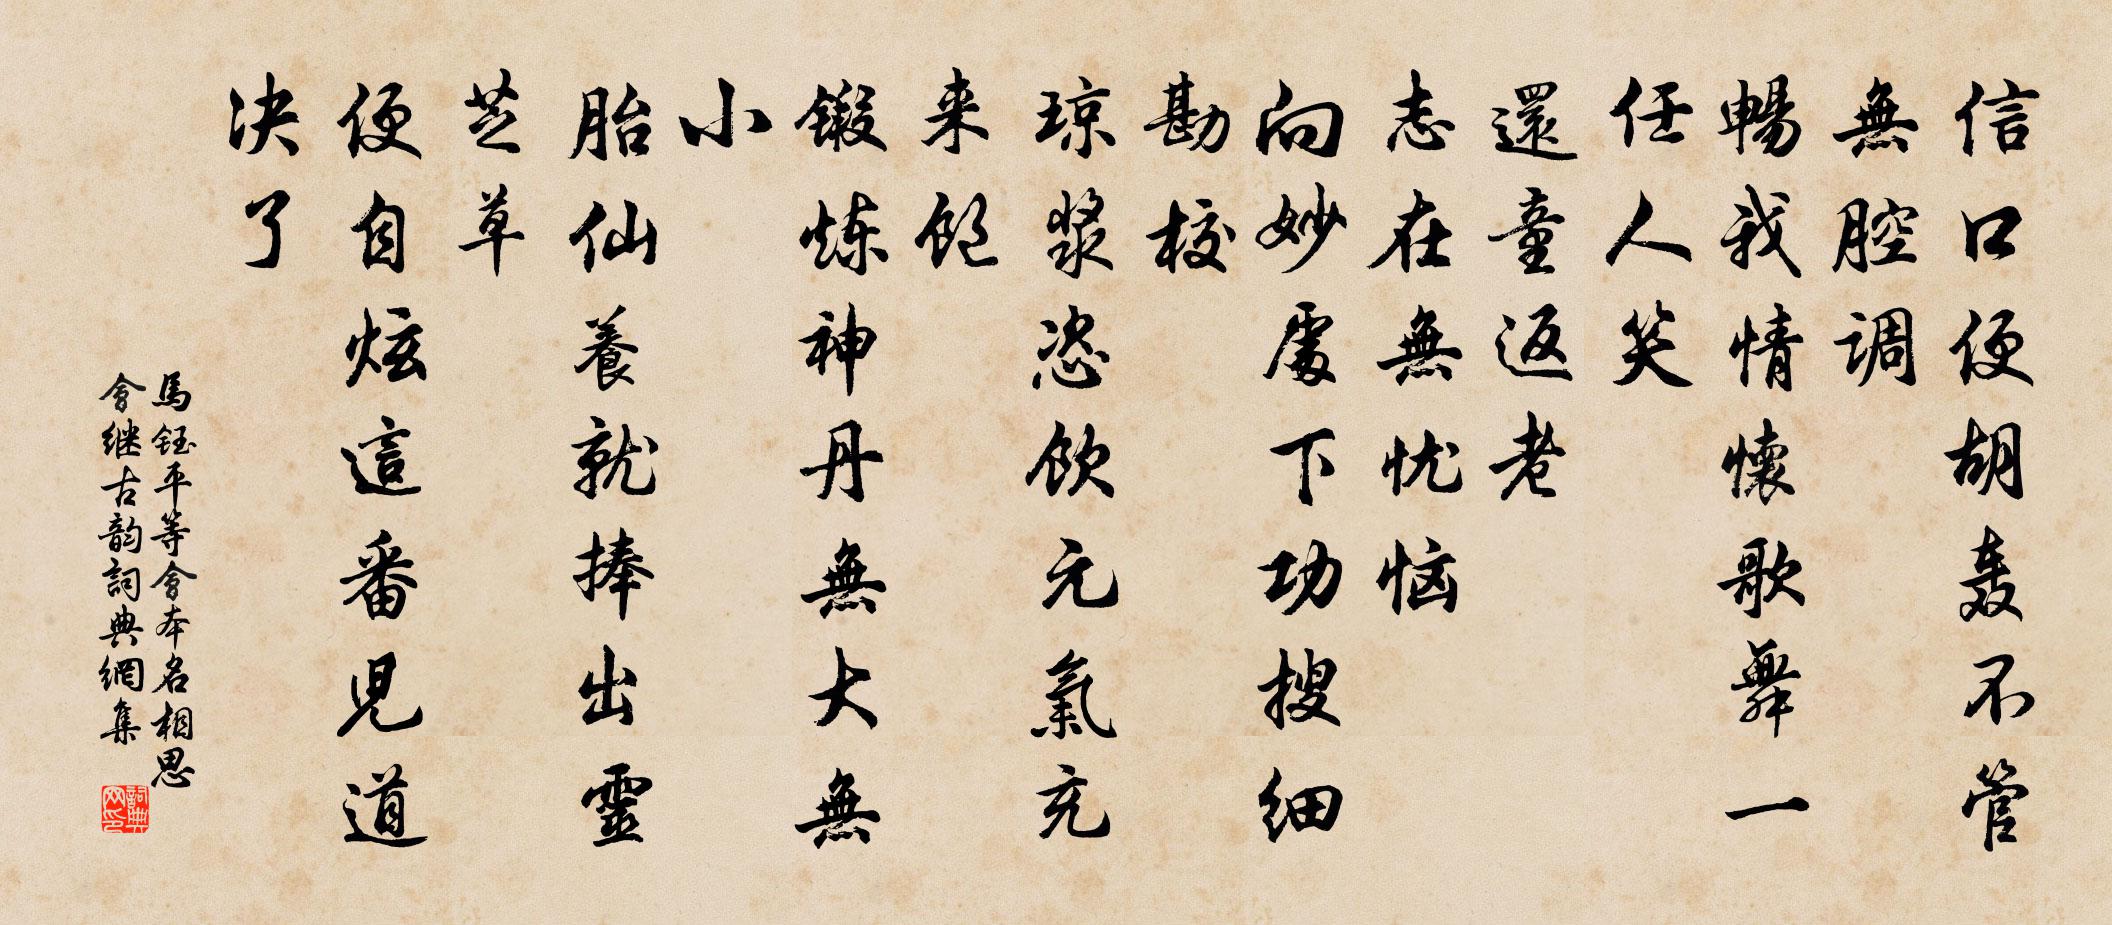 信口便胡轰不管
無腔調
暢我情懷歌舞一
任人笑
還童返老
志在無忧恼
向妙處下功搜细
勘校
琼漿恣飲元氣充
来飽
鍛炼神丹無大無
小
胎仙養就捧出靈
芝草
便自炫這番見道
决了
馬鈺平等會本名相思
會继古韵詞典網集
詞典网印